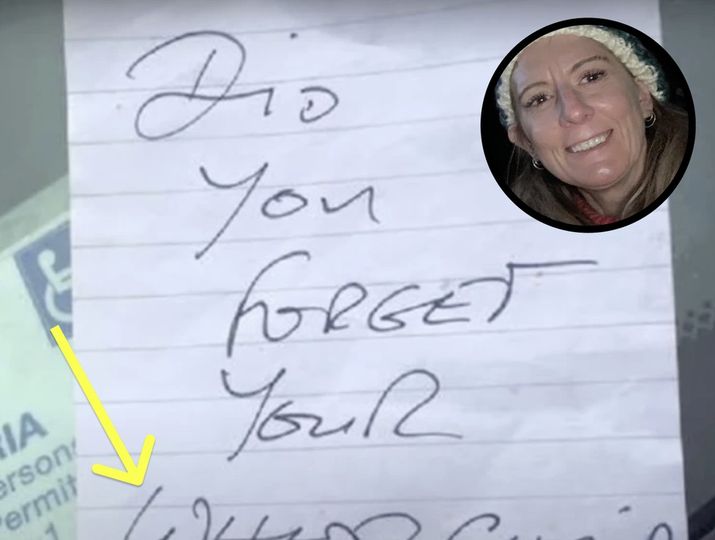 DiD
You
FORGET
YouR
IA
erson
ermit